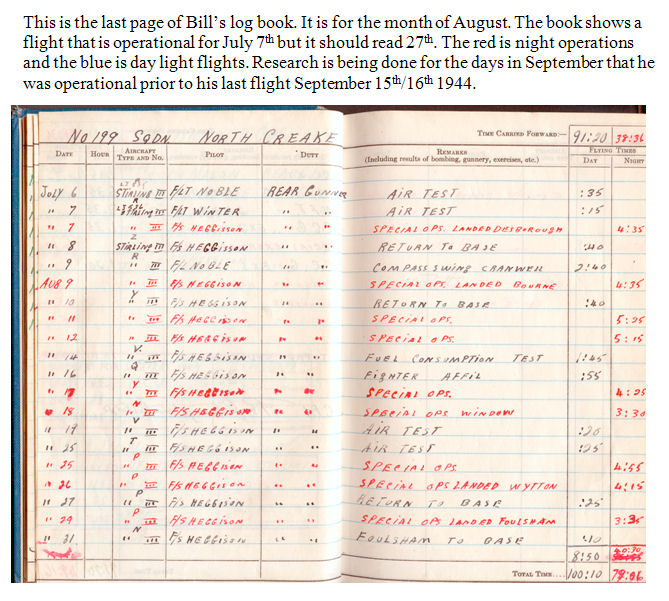 This is the last page of Bill's log book. It is for the month of August. The book shows a
flight that is operational for July 7th but it should read 27th. The red is night operations
and the blue is day light flights. Research is being done for the days in September that he
was operational prior to his last flight September 15th/16th 1944.
No 199 SQDN NORTH CREAKE TIME CARRIED FORWARD:— 91:20 38:36
DATE HOUR AIRCRAFT TYPE AND NO. PILOT DUTY REMARKS (Including results of bombing, gunnery, exercises, etc.) FLYING TIMES DAY NIGHT
JULY 6 STIRLING III F/LT NOBLE REAR GUNNER AIR TEST :35
" 7 STIRLING III F/LT WINTER " " AIR TEST :15
" 7 " III F/S HEGGISSON " " SPECIAL OPS. LANDED DESBOROUGH 4:35
" 8 Z STIRLING III F/S HEGGISSON " " RETURN TO BASE :40
" 9 R " III F/L NOBLE " " COMPASS SWING CRANWELL 2:40
AUG 9 " III F/S HEGGISON " " SPECIAL OPS. LANDED BOURNE 4:35
" 10 Y " III F/S HEGGISON " " RETURN TO BASE :40
" 11 " III F/S HEGGISON " " SPECIAL OPS. 5:25
" 12 " III F/S HEGGISON " " SPECIAL OPS. 5:15
" 14 V " III F/S HEGGISON " " FUEL CONSUMPTION TEST 1:45
" 16 Q " III F/S HEGGISON " " FIGHTER AFFIL :55
" 17 Y " III F/S HEGGISON " " SPECIAL OPS. 4:25
" 18 N " III F/S HEGGISON " " SPECIAL OPS WINDOW 3:30
" 19 V " III F/S HEGGISON " " AIR TEST :20
" 25 T " III F/S HEGGISON " " AIR TEST :25
" 25 P " III F/S HEGGISON " " SPECIAL OPS 4:55
" 26 P " III F/S HEGGISON " " SPECIAL OPS LANDED WYTTON 4:15
" 27 P " III F/S HEGGISON " " RETURN TO BASE :25
" 29 P " III F/S HEGGISON " " SPECIAL OPS LANDED FOULSHAM 3:35
" 31 N " III F/S HEGGISON " " FOULSHAM TO BASE :10
8:50 40:30
TOTAL TIME.... 100:10 79:06